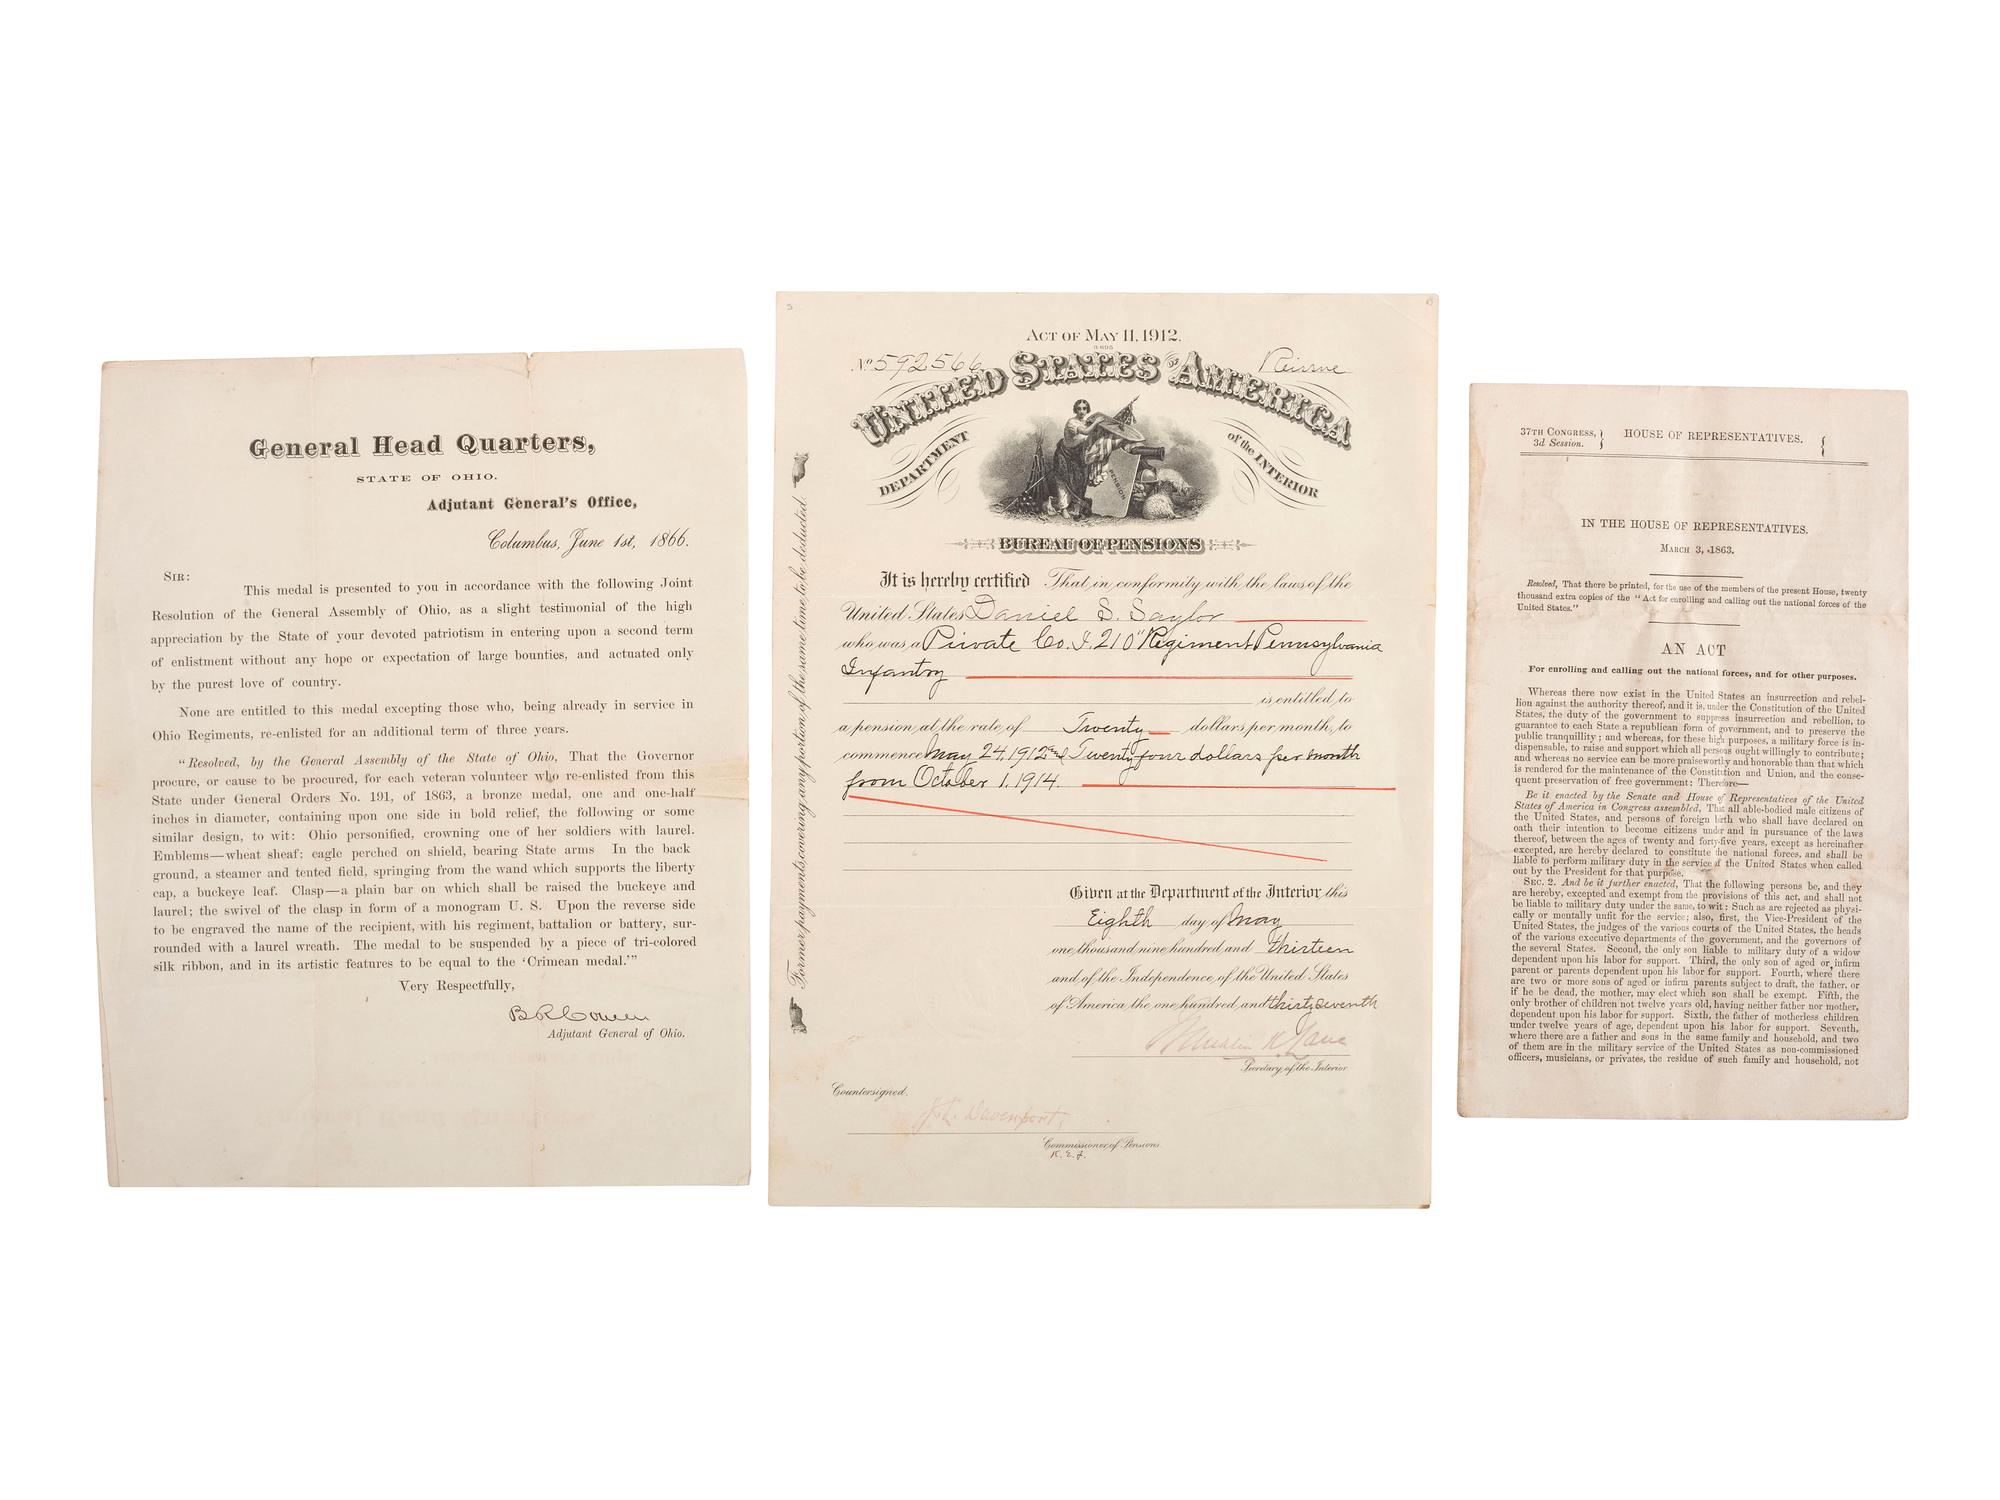 General Head Quarters,
STATE OF OHIO.
Adjutant General's Office,
Columbus, June 1st, 1866.
SIR:
This medal is presented to you in accordance with the following Joint
Resolution of the General Assembly of Ohio, as a slight testimonial of the high
appreciation by the State of your devoted patriotism in entering upon a second term
of enlistment without any hope or expectation of large bounties, and actuated only
by the purest love of country.
None are entitled to this medal excepting those who, being already in service in
Ohio Regiments, re-enlisted for an additional term of three years.
"Resolved, by the General Assembly of the State of Ohio, That the Governor
procure, or cause to be procured, for each veteran volunteer who re-enlisted from this
State under General Orders No. 191, of 1863, a bronze medal, one and one-half
inches in diameter, containing upon one side in bold relief, the following or some
similar design, to wit: Ohio personified, crowning one of her soldiers with laurel.
Emblems—wheat sheaf; eagle perched on shield, bearing State arms In the back
ground, a steamer and tented field, springing from the wand which supports the liberty
cap, a buckeye leaf. Clasp—a plain bar on which shall be raised the buckeye and
laurel; the swivel of the clasp in form of a monogram U. S. Upon the reverse side
to be engraved the name of the recipient, with his regiment, battalion or battery, sur-
rounded with a laurel wreath. The medal to be suspended by a piece of tri-colored
silk ribbon, and in its artistic features to be equal to the 'Crimean medal.'"
Very Respectfully,
B R Cowen
Adjutant General of Ohio.
ACT OF MAY 11, 1912.
3-695
No. 592566
Reissue
UNITED STATES OF AMERICA
DEPARTMENT of the INTERIOR
PENSION
BUREAU OF PENSIONS
It is hereby certified That in conformity with the laws of the
United States Daniel S. Saylor
who was a Private Co. I. 210" Regiment Pennsylvania
Infantry
is entitled to
a pension at the rate of Twenty dollars per month, to
commence May 24, 1912 and Twenty four dollars per month
from October 1. 1914.
Former payments covering any portion of the same time to be deducted.
Given at the Department of the Interior this
Eighth day of May
one thousand nine hundred and thirteen
and of the Independence of the United States
of America the one hundred and thirty seventh
Franklin K. Lane
Secretary of the Interior
Countersigned,
J. L. Davenport,
Commissioner of Pensions.
37TH CONGRESS, } HOUSE OF REPRESENTATIVES. {
3d Session.
IN THE HOUSE OF REPRESENTATIVES.
MARCH 3, 1863.
Resolved, That there be printed, for the use of the members of the present House, twenty
thousand extra copies of the "Act for enrolling and calling out the national forces of the
United States."
AN ACT
For enrolling and calling out the national forces, and for other purposes.
Whereas there now exist in the United States an insurrection and rebel-
lion against the authority thereof, and it is, under the Constitution of the United
States, the duty of the government to suppress insurrection and rebellion, to
guarantee to each State a republican form of government, and to preserve the
public tranquillity; and whereas, for these high purposes, a military force is in-
dispensable, to raise and support which all persons ought willingly to contribute;
and whereas no service can be more praiseworthy and honorable than that which
is rendered for the maintenance of the Constitution and Union, and the conse-
quent preservation of free government: Therefore—
Be it enacted by the Senate and House of Representatives of the United
States of America in Congress assembled, That all able-bodied male citizens of
the United States, and persons of foreign birth who shall have declared on
oath their intention to become citizens under and in pursuance of the laws
thereof, between the ages of twenty and forty-five years, except as hereinafter
excepted, are hereby declared to constitute the national forces, and shall be
liable to perform military duty in the service of the United States when called
out by the President for that purpose.
SEC. 2. And be it further enacted, That the following persons be, and they
are hereby, excepted and exempt from the provisions of this act, and shall not
be liable to military duty under the same, to wit: Such as are rejected as physi-
cally or mentally unfit for the service; also, first, the Vice-President of the
United States, the judges of the various courts of the United States, the heads
of the various executive departments of the government, and the governors of
the several States. Second, the only son liable to military duty of a widow
dependent upon his labor for support. Third, the only son of aged or infirm
parent or parents dependent upon his labor for support. Fourth, where there
are two or more sons of aged or infirm parents subject to draft, the father, or
if he be dead, the mother, may elect which son shall be exempt. Fifth, the
only brother of children not twelve years old, having neither father nor mother,
dependent upon his labor for support. Sixth, the father of motherless children
under twelve years of age, dependent upon his labor for support. Seventh,
where there are a father and sons in the same family and household, and two
of them are in the military service of the United States as non-commissioned
officers, musicians, or privates, the residue of such family and household, not